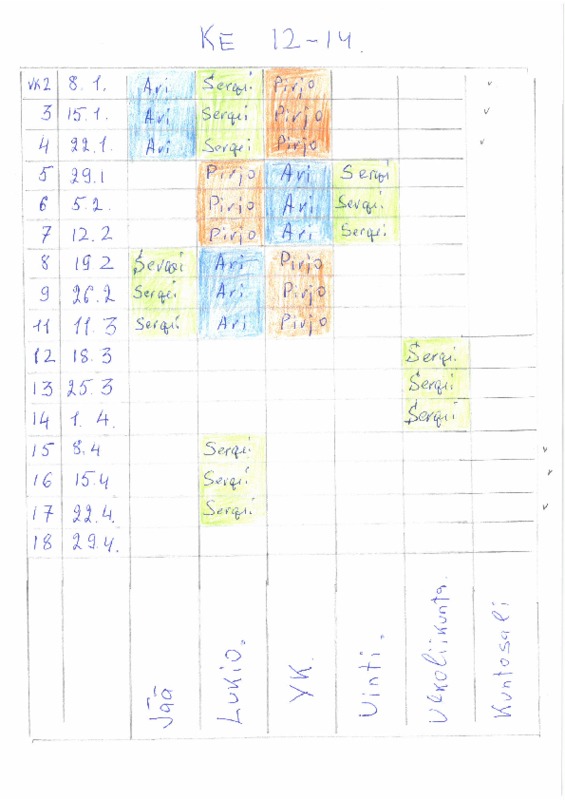 KE 12-14.
VK2 8.1. Ari Sergi Pirjo v
3 15.1. Ari Sergi Pirjo v
4 22.1. Ari Sergi Pirjo v
5 29.1 Pirjo Ari Sergi
6 5.2. Pirjo Ari Sergi.
7 12.2 Pirjo Ari Sergi.
8 19.2 Sergi Ari Pirjo
9 26.2 Sergi Ari Pirjo
11 11.3 Sergi Ari Pirjo
12 18.3 Sergi.
13 25.3 Sergi.
14 1.4. Sergi
15 8.4 Sergi. v
16 15.4 Sergi. v
17 22.4. Sergi. v
18 29.4.
Jää
Lukio.
YK.
Uinti.
Ulkoliikunta.
Kuntosali